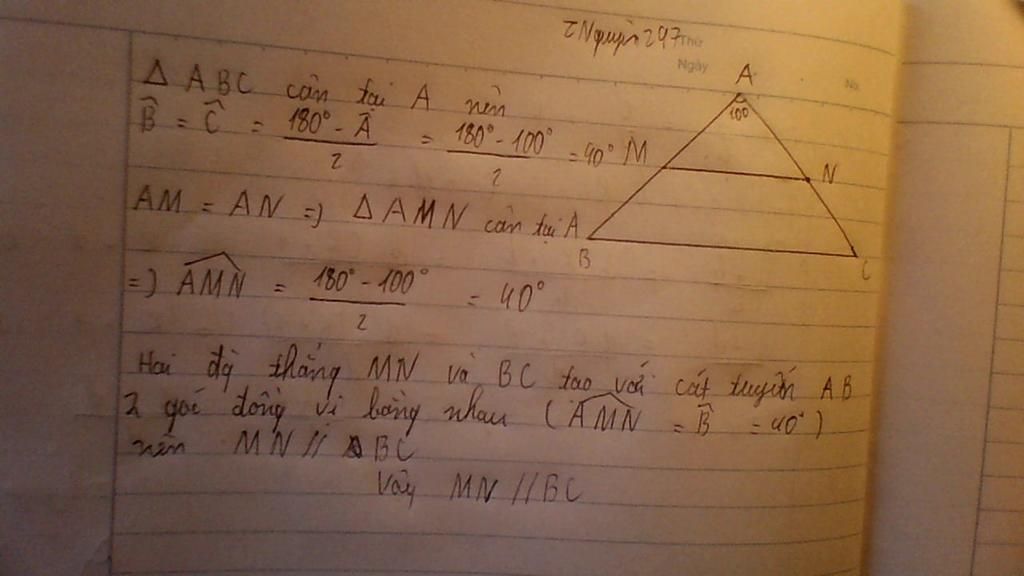 ZNguyễn247
Thứ
Ngày
No.
Δ ABC cân tại A nên
B̂ = Ĉ = (180° - Â)/2 = (180° - 100°)/2 = 40°
AM = AN => Δ AMN cân tại A
=> \widehat{AMN} = (180° - 100°)/2 = 40°
Hai đg thẳng MN và BC tạo với cát tuyến AB
2 góc đồng vị bằng nhau (\widehat{AMN} = B̂ = 40°)
nên MN // BC
Vậy MN // BC
A
100
M
N
B
C